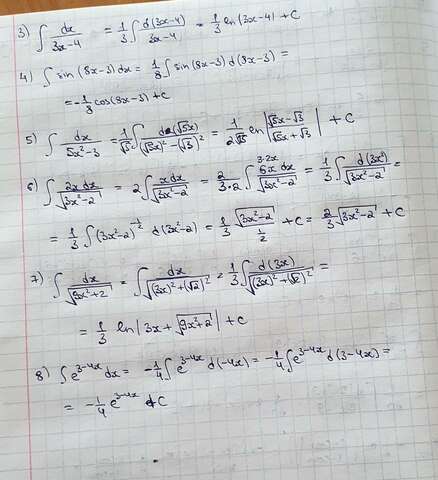 3) ∫ dx/(3x-4) = 1/3 ∫ d(3x-4)/(3x-4) = 1/3 ln(3x-4) + C
4) ∫ sin (8x-3) dx = 1/8 ∫ sin (8x-3) d(8x-3) =
= -1/8 cos(8x-3) + C
5) ∫ dx/(5x²-3) = 1/√5 ∫ d(√5x)/((√5x)²-(√3)²) = 1/(2√15) ln |(√5x-√3)/(√5x+√3)| + C
6) ∫ 2x dx/√(3x²-2) = 2 ∫ x dx/√(3x²-2) = 2/(3·2) ∫ 6x dx/√(3x²-2) = 1/3 ∫ d(3x²)/√(3x²-2) =
= 1/3 ∫ (3x²-2)^(-1/2) d(3x²-2) = 1/3 √(3x²-2)/(1/2) + C = 2/3 √(3x²-2) + C
7) ∫ dx/√(9x²+2) = ∫ dx/√((3x)²+(√2)²) = 1/3 ∫ d(3x)/√((3x)²+(√2)²) =
= 1/3 ln |3x + √(9x²+2)| + C
8) ∫ e^(3-4x) dx = -1/4 ∫ e^(3-4x) d(-4x) = -1/4 ∫ e^(3-4x) d(3-4x) =
= -1/4 e^(3-4x) + C